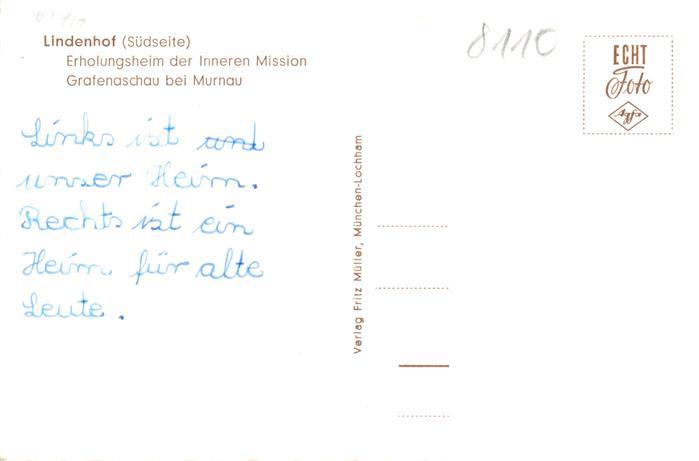 Lindenhof (Südseite)
Erholungsheim der Inneren Mission
Grafenaschau bei Murnau
8110
ECHT
Foto
Agfa
Links ist und
unser Heim.
Rechts ist ein
Heim für alte
Leute.
Verlag Fritz Müller, München-Lochham